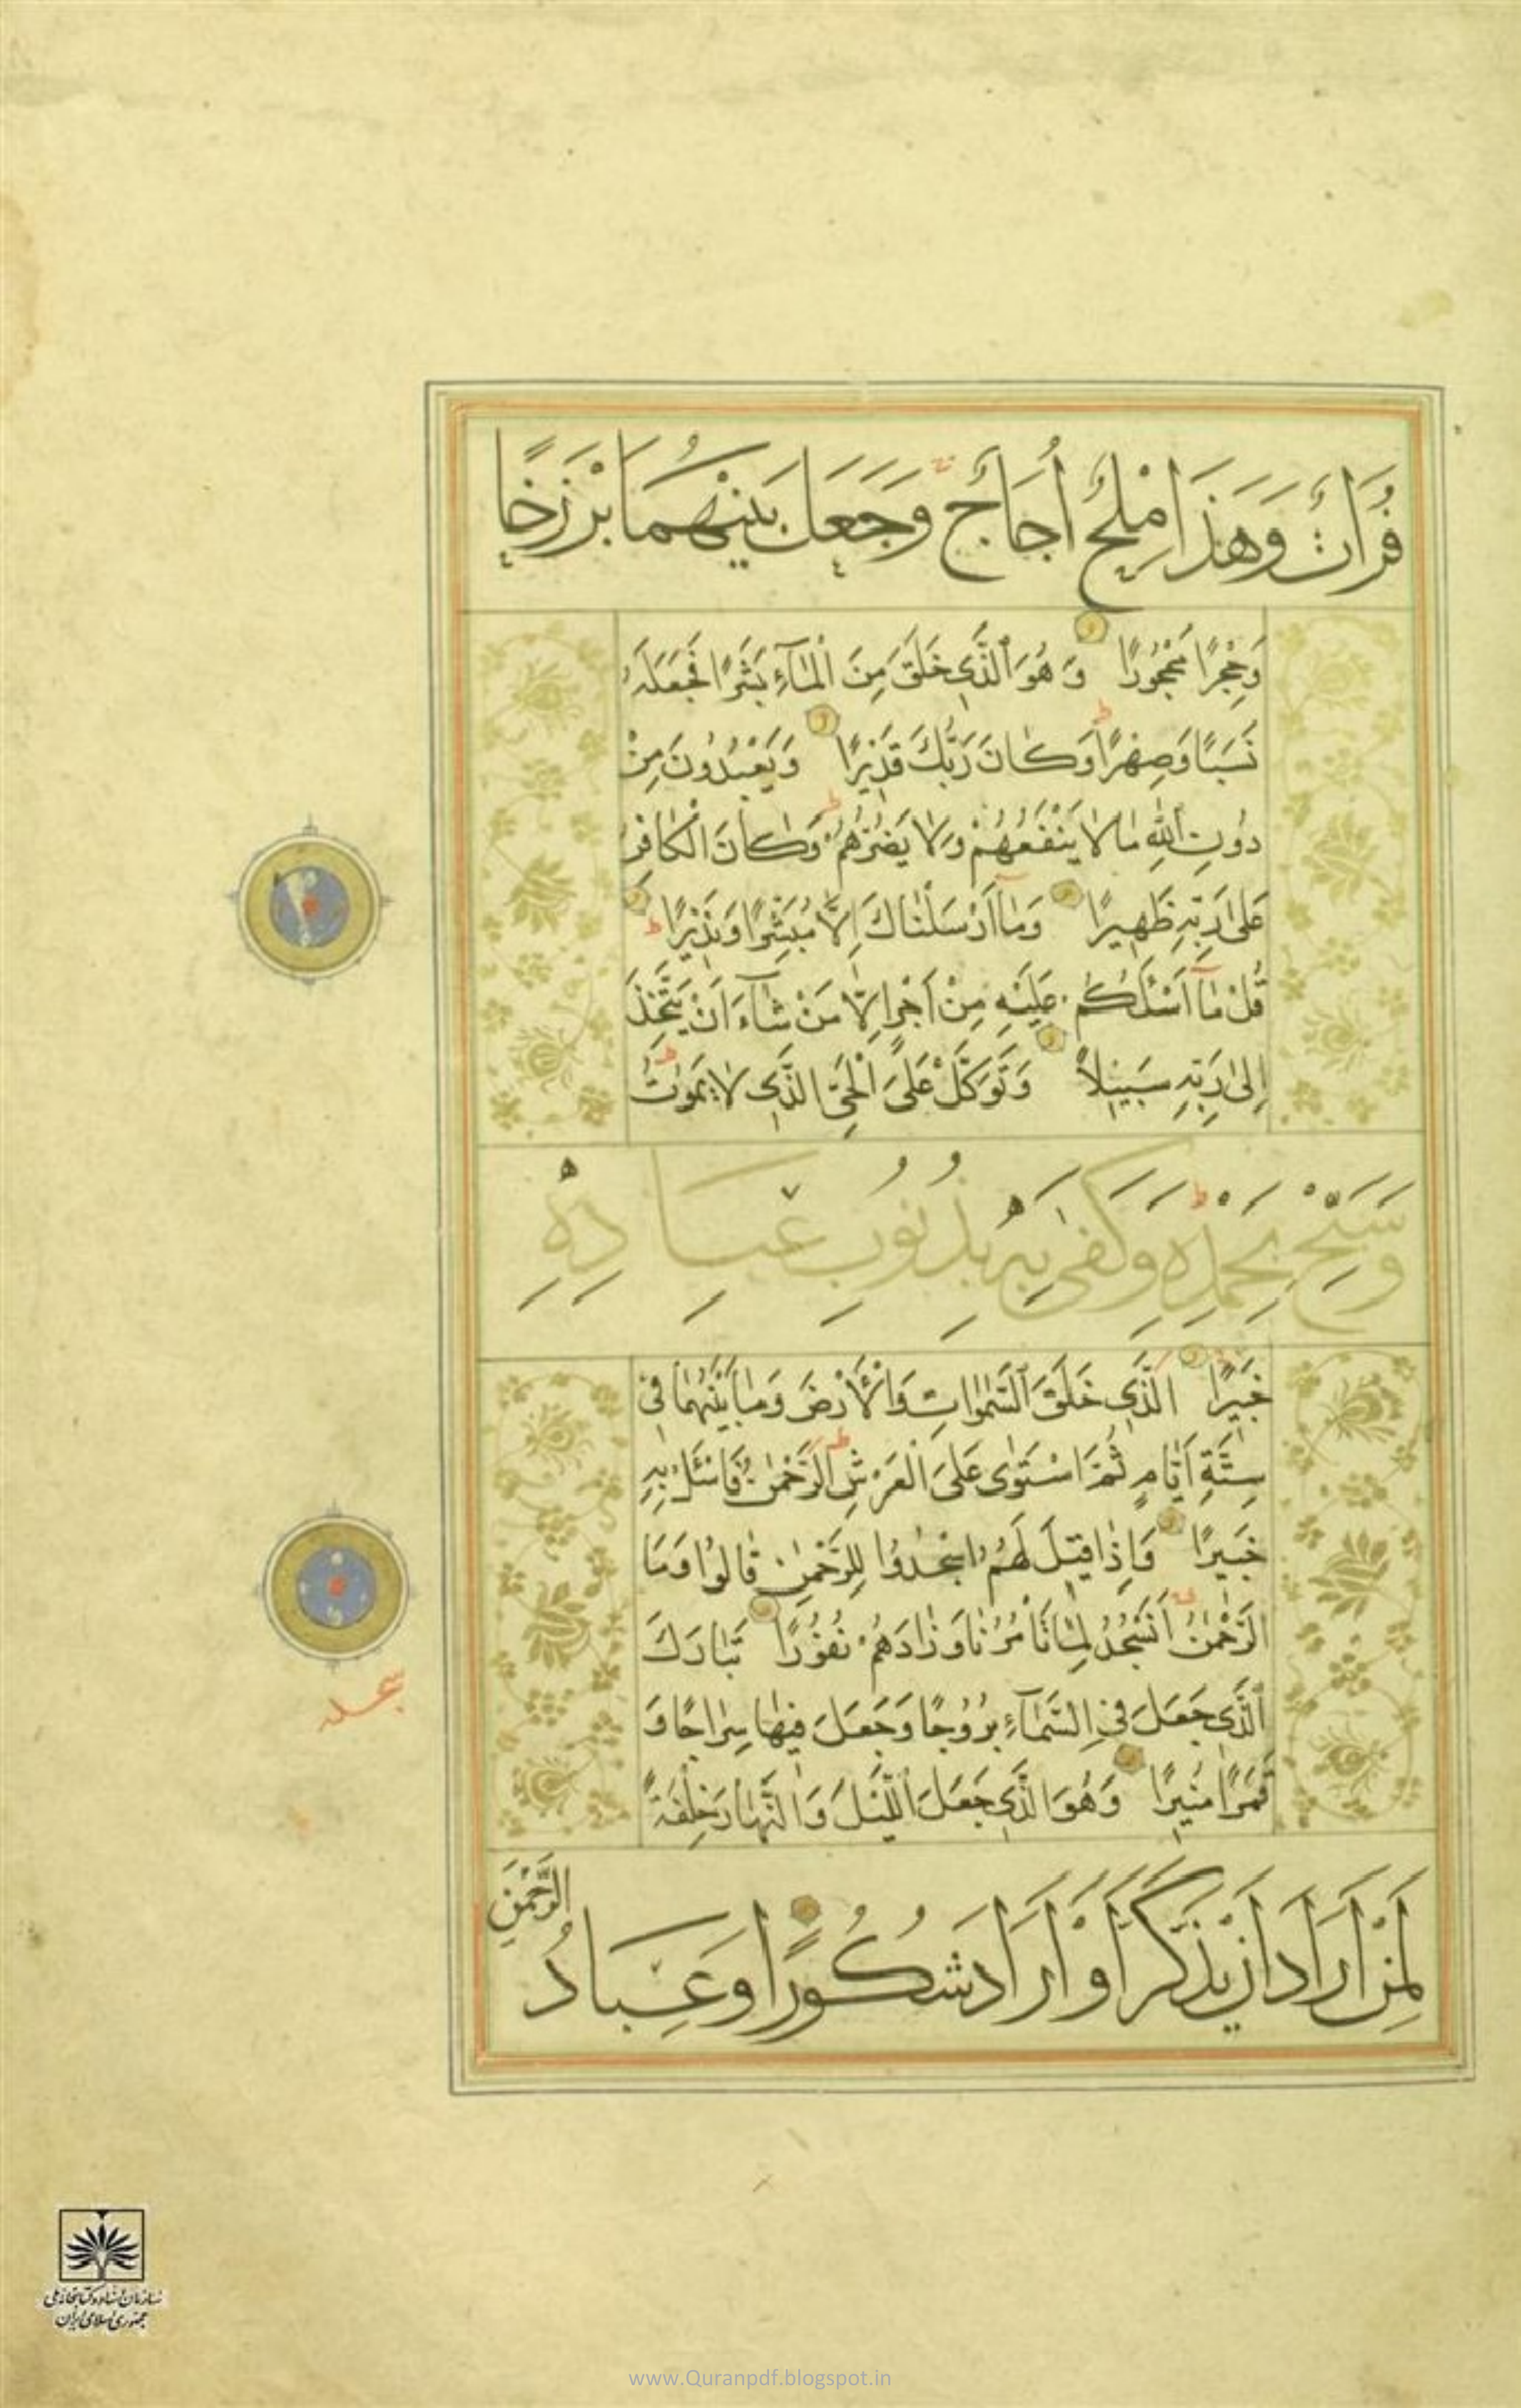 فُرَاتٌ وَهَذَا مِلْحٌ أُجَاجٌ وَجَعَلَ بَيْنَهُمَا بَرْزَخًا
وَحِجْرًا مَحْجُورًا وَهُوَ الَّذِي خَلَقَ مِنَ الْمَآءِ بَشَرًا فَجَعَلَهُ
نَسَبًا وَصِهْرًا وَكَانَ رَبُّكَ قَدِيرًا وَيَعْبُدُونَ مِنْ
دُونِ اللَّهِ مَا لَا يَنْفَعُهُمْ وَلَا يَضُرُّهُمْ وَكَانَ الْكَافِرُ
عَلَى رَبِّهِ ظَهِيرًا وَمَآ أَرْسَلْنَاكَ إِلَّا مُبَشِّرًا وَنَذِيرًا
قُلْ مَآ اَسْئَلُكُمْ عَلَيْهِ مِنْ اَجْرٍ اِلَّا مَنْ شَآءَ اَنْ يَتَّخِذَ
إِلَى رَبِّهِ سَبِيلًا وَتَوَكَّلْ عَلَى الْحَيِّ الَّذِي لَا يَمُوتُ
وَسَبِّحْ بِحَمْدِهِ وَكَفَى بِهِ بِذُنُوبِ عِبَادِهِ
خَبِيرًا الَّذِي خَلَقَ السَّمٰوَاتِ وَالْأَرْضَ وَمَا بَيْنَهُمَا فِي
سِتَّةِ اَيَّامٍ ثُمَّ اسْتَوَى عَلَى الْعَرْشِ الرَّحْمٰنُ فَاسْئَلْ بِهِ
خَبِيرًا وَاِذَا قِيلَ لَهُمُ اسْجُدُوا لِلرَّحْمٰنِ قَالُوا وَمَا
الرَّحْمٰنُ اَنَسْجُدُ لِمَا تَأْمُرُنَا وَزَادَهُمْ نُفُورًا تَبَارَكَ
الَّذِي جَعَلَ فِي السَّمَآءِ بُرُوجًا وَجَعَلَ فِيهَا سِرَاجًا وَ
قَمَرًا مُنِيرًا وَهُوَ الَّذِي جَعَلَ اللَّيْلَ وَالنَّهَارَ خِلْفَةً
لِمَنْ اَرَادَ اَنْ يَذَّكَّرَ اَوْ اَرَادَ شُكُورًا وَعِبَادُ
الرَّحْمٰنِ
سجده
سازمان اسناد و کتابخانه ملی
جمهوری اسلامی ایران
www.Quranpdf.blogspot.in